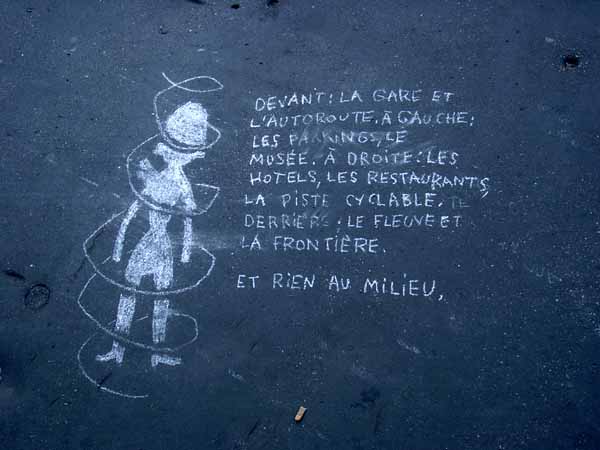 DEVANT: LA GARE ET
L'AUTOROUTE. À GAUCHE:
LES PARKINGS, LE
MUSÉE. À DROITE: LES
HOTELS, LES RESTAURANTS,
LA PISTE CYCLABLE.
DERRIÈRE: LE FLEUVE ET
LA FRONTIÈRE.
ET RIEN AU MILIEU,